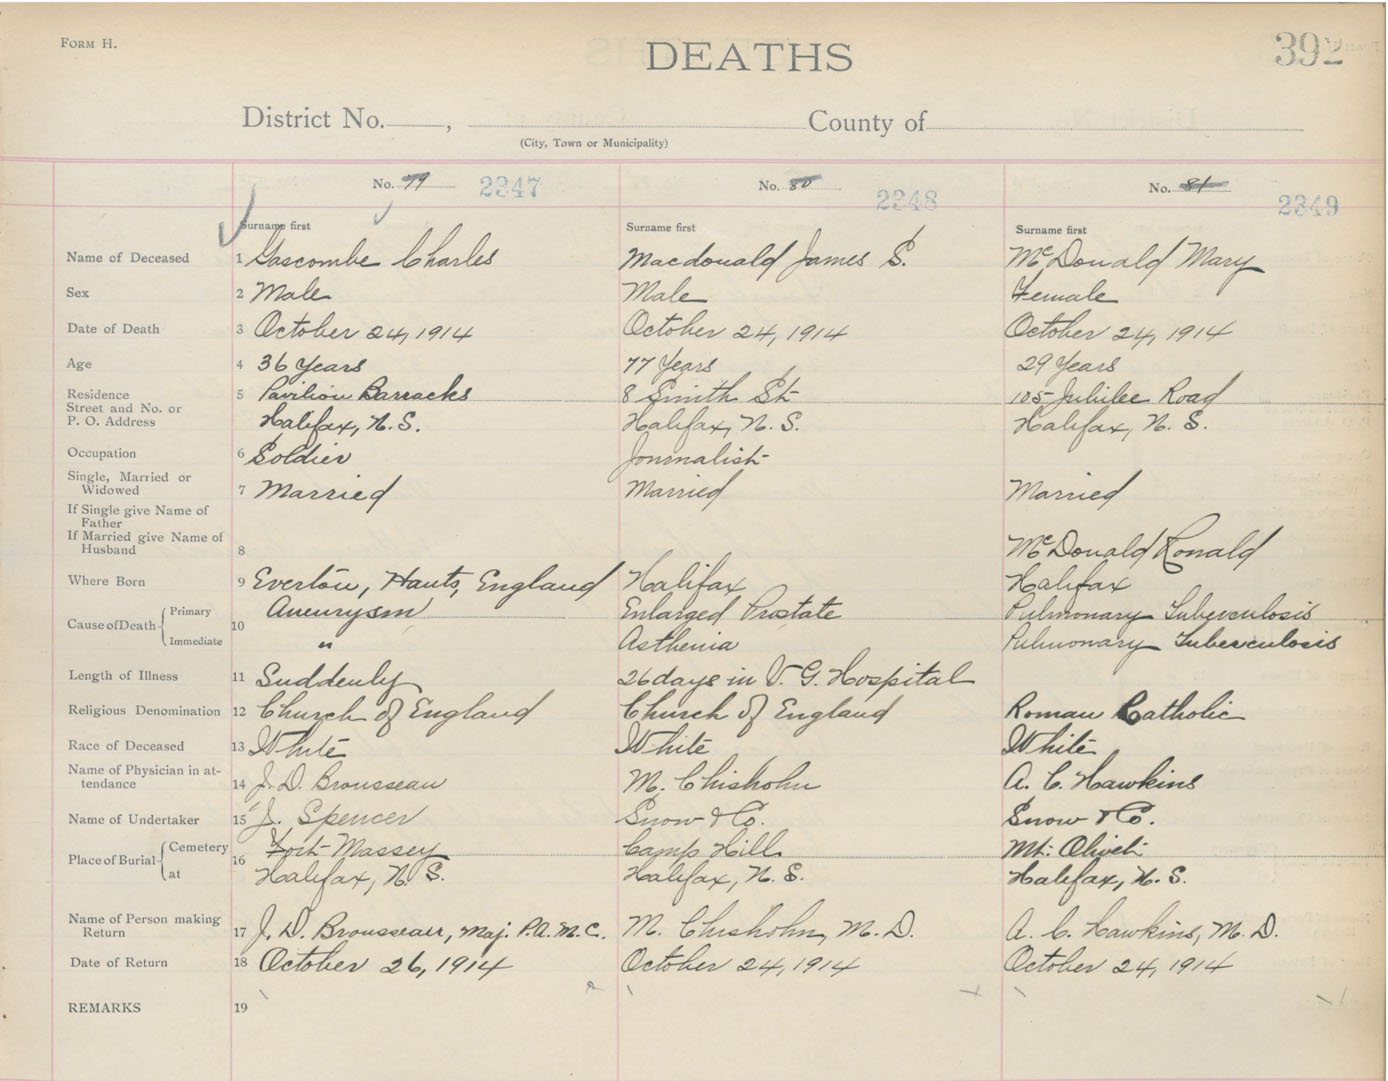 FORM H.
DEATHS
392
District No. , County of
(City, Town or Municipality)
No. 79 2347 No. 80 2348 No. 81 2349
Surname first Surname first Surname first
Name of Deceased 1 Gascombe Charles Macdonald James S. McDonald Mary
Sex 2 Male Male Female
Date of Death 3 October 24, 1914 October 24, 1914 October 24, 1914
Age 4 36 Years 77 Years 29 Years
Residence 5 Pavilion Barracks 8 Smith St 105 Jubilee Road
Street and No. or
P. O. Address Halifax, N. S. Halifax, N. S. Halifax, N. S.
Occupation 6 Soldier Journalist
Single, Married or
Widowed 7 Married Married Married
If Single give Name of
Father
If Married give Name of
Husband 8 McDonald Ronald
Where Born 9 Everton, Hants, England Halifax Halifax
Cause of Death Primary 10 Aneurysm Enlarged Prostate Pulmonary Tuberculosis
Immediate " Asthenia Pulmonary Tuberculosis
Length of Illness 11 Suddenly 26 days in V. G. Hospital
Religious Denomination 12 Church of England Church of England Roman Catholic
Race of Deceased 13 White White White
Name of Physician in at-
tendance 14 J. D. Brousseau M. Chisholm A. C. Hawkins
Name of Undertaker 15 J. Spencer Snow & Co. Snow & Co.
Place of Burial Cemetery 16 Fort Massey Camp Hill Mt. Olivet
at Halifax, N. S. Halifax, N. S. Halifax, N. S.
Name of Person making
Return 17 J. D. Brousseau, Maj. P.A.M.C. M. Chisholm, M. D. A. C. Hawkins, M. D.
Date of Return 18 October 26, 1914 October 24, 1914 October 24, 1914
REMARKS 19